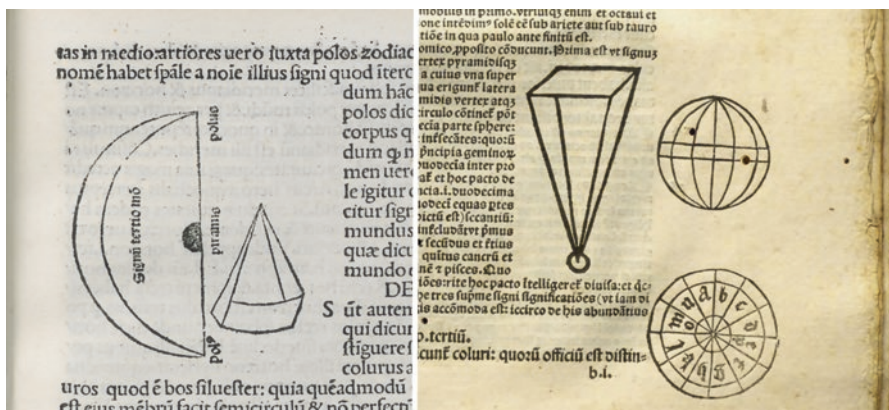 tas in medio: artiores uero iuxta polos zodiac
nomē habet spāle a noīe illius signi quod iterc
dum hāc
polos dic
corpus q
dum ꝙ n
men uero
le igitur c
citur sign
mundus
quæ dicu
mundo e
DE
S ūt auten
qui dicur
stiguere s
colurus a
uros quod ē bos siluester: quia quēadmodū
est eius mēbrū facit semicirculū & nō perfectū
polus
Signū tertio mō
piramis
polꝰ
one intēdimꝰ solē cē sub ariete aut sub tauro
tiōe in qua paulo ante finitū est.
omico, pposito cōducunt. Prima est vt signuʒ
ertex pyramidisqʒ
a cuius vna super
qua erigunt latera
midis vertex atqʒ
circulo cōtineƭ pōt
ecia parte sphere:
inƙsecātes: quorū
pncipia geminoꝝ
uodecia inter pio
ak et hoc pacto de
ncia.i. duodecima
uodeci equas ptes
dictū est) secantiū:
inƙcludāƭvt pmus
t secūdus et ƙtius
quitus cancrū et
nē ⁊ pisces. Quo
iōes: rite hoc pacto ītelligerƭ diuisa: et qc-
he tres supme signi significatiōes (vt iam di
is accōmoda est: iccirco de his abundātius
o. tertiū.
cunƭ coluri: quorū officiū est distin=
b.i.
a b c d e
g h
l m n o